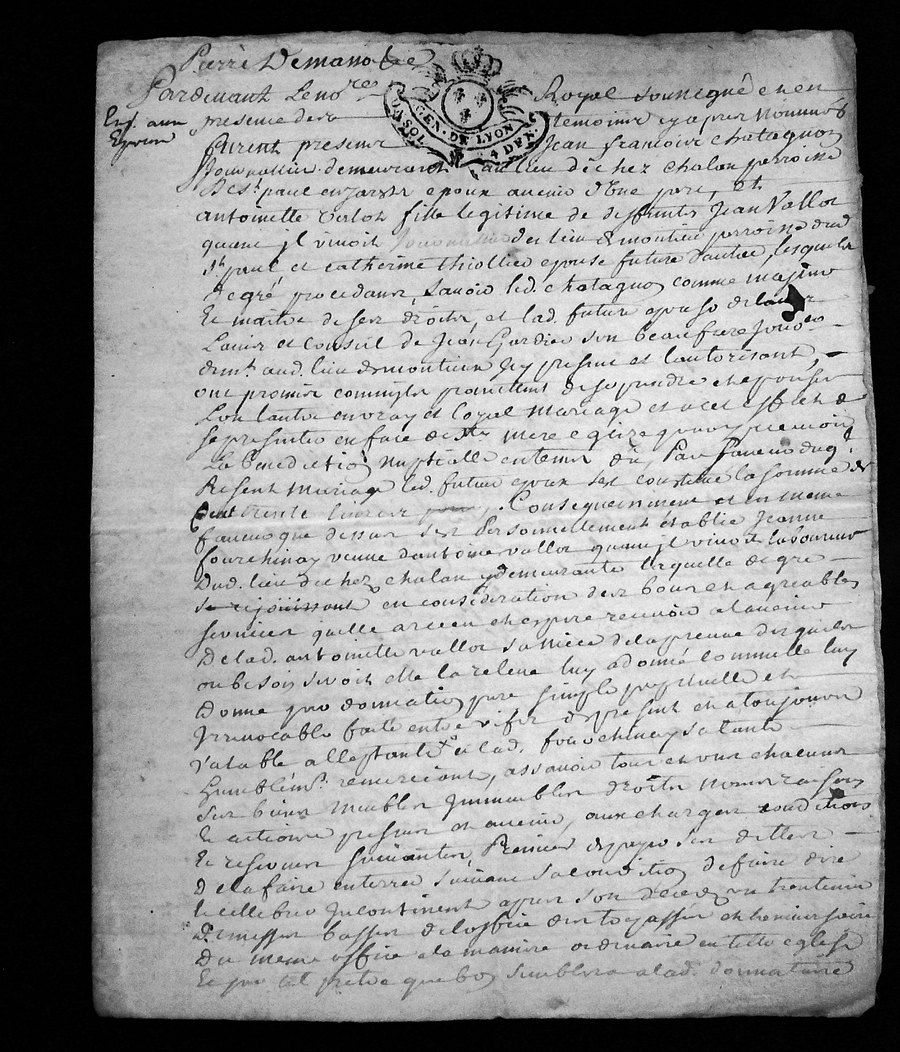 Pierre Demano
Pardevant Le no.re Royal soubsigné et en
presence des temoins cy apres Nommés
furent presens Jean francois Chatagnon
demeurant au lieu de chez chalan parroisse
De st. paul en Jarest epoux avenir d'Une part, Et
antoinette Vallot fille legitime de deffunts Jean Vallot
quand jl vivoit du lieu de montieu parroisse dud.
st. paul et catherine thiollier epouse future d'autre, lesquels
de gré procedants, savoir led. chatagnon comme majeur
Et maitre de ses droits, et lad. future epouse de
L'avis et Conseil de Jean Gardier son beaufrere
dem.t aud. lieu de montieu jcy present et L'autorisant,
ont promis comme ils promettent de se prendre et epouser
L'un L'autre en vray et Loyal mariage et a cet effet de
se presenter en face de Ste mere eglize pour y recevoir
La Benediction Nuptialle en tems du, Par faveur duq.l
Present mariage led. futur epoux s'est constitué la somme de
Cent trente livres. Consequemment et en meme
faveur que dessus s'est Personnellement etablie Jeanne
fourchinay veuve d'antoine vallot quand jl vivoit laboureur
Dud. lieu de chez chalan y demeurante laquelle de gré
se rejouissant en consideration des bons et agreables
services quelle a receu et espere recevoir a l'avenir
De lad. antoinette vallot sa niece de la preuve desquels
ou besoin seroit elle la releve luy a donné comme elle luy
Donne par donnation pure simple perpetuelle et
Jrrevocable faite entre vifs des present et a toujours
valable acceptante lad. fourchinay sa tante
humblem.t remerciant, assavoir tous et uns chacuns
ses biens meubles Jmmeubles droits noms raisons
Et actions presens et avenir, aux charges conditions
Et reserves suivantes, Premier de payer ses dettes
De la faire enterrer suivant sa condition de faire dire
Et cellebrer Jncontinent apres son deced
De messes basses de l'office des trepassés et
Du meme office a la maniere ordinaire en telle eglise
Et par tel pretre que bon semblera a lad. donnataire